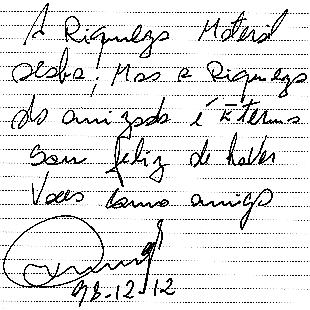 A Riqueza Material
acaba! Mas a Riqueza
da amizade é Eterna
Sou feliz de haver
Voce como amigo
98-12-12